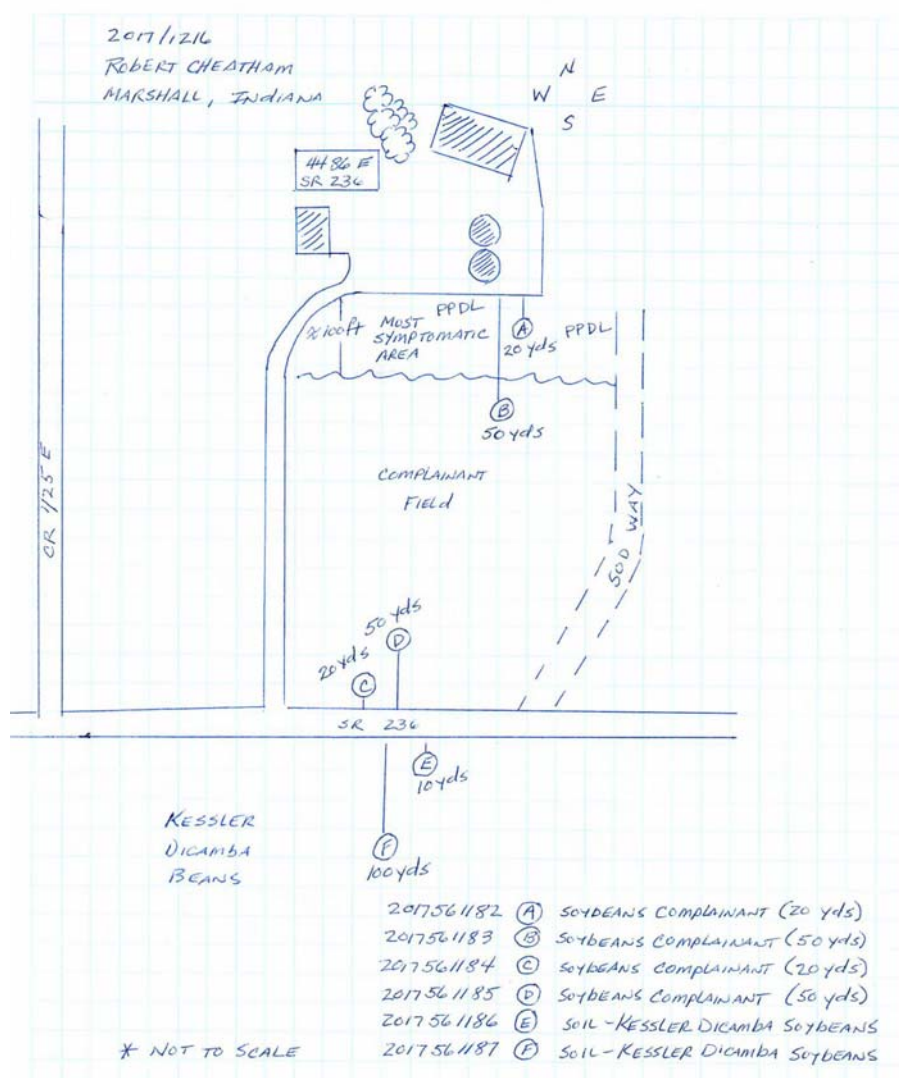 2017/1216
ROBERT CHEATHAM
MARSHALL, INDIANA
N
W E
S
4486 E
SR 236
≈100ft
MOST
SYMPTOMATIC
AREA
PPDL
A
20 yds
PPDL
B
50 yds
COMPLAINANT
FIELD
CR 1125 E
SOD WAY
50 yds
D
20 yds
C
SR 236
E
10 yds
KESSLER
DICAMBA
BEANS
F
100 yds
2017561182 A SOYBEANS COMPLAINANT (20 yds)
2017561183 B SOYBEANS COMPLAINANT (50 yds)
2017561184 C SOYBEANS COMPLAINANT (20 yds)
2017561185 D SOYBEANS COMPLAINANT (50 yds)
2017561186 E SOIL-KESSLER DICAMBA SOYBEANS
2017561187 F SOIL-KESSLER DICAMBA SOYBEANS
* NOT TO SCALE